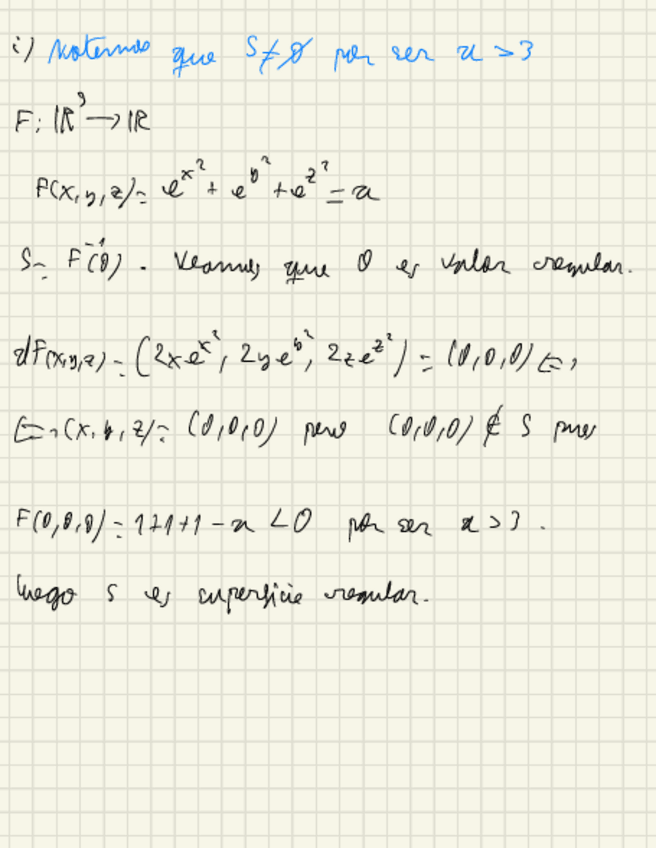 i) Notemos que S≠∅ por ser a >3
F: ℝ³ → ℝ
F(x,y,z)= e^{x²} + e^{y²} + e^{z²} - a
S= F^{-1}(0). Veamos que 0 es valor regular.
dF(x,y,z) = (2xe^{x²}, 2ye^{y²}, 2ze^{z²}) = (0,0,0) ⟺
⟺ (x,y,z)= (0,0,0) pero (0,0,0) ∉ S pues
F(0,0,0)= 1+1+1-a <0 por ser a >3.
luego S es superficie regular.